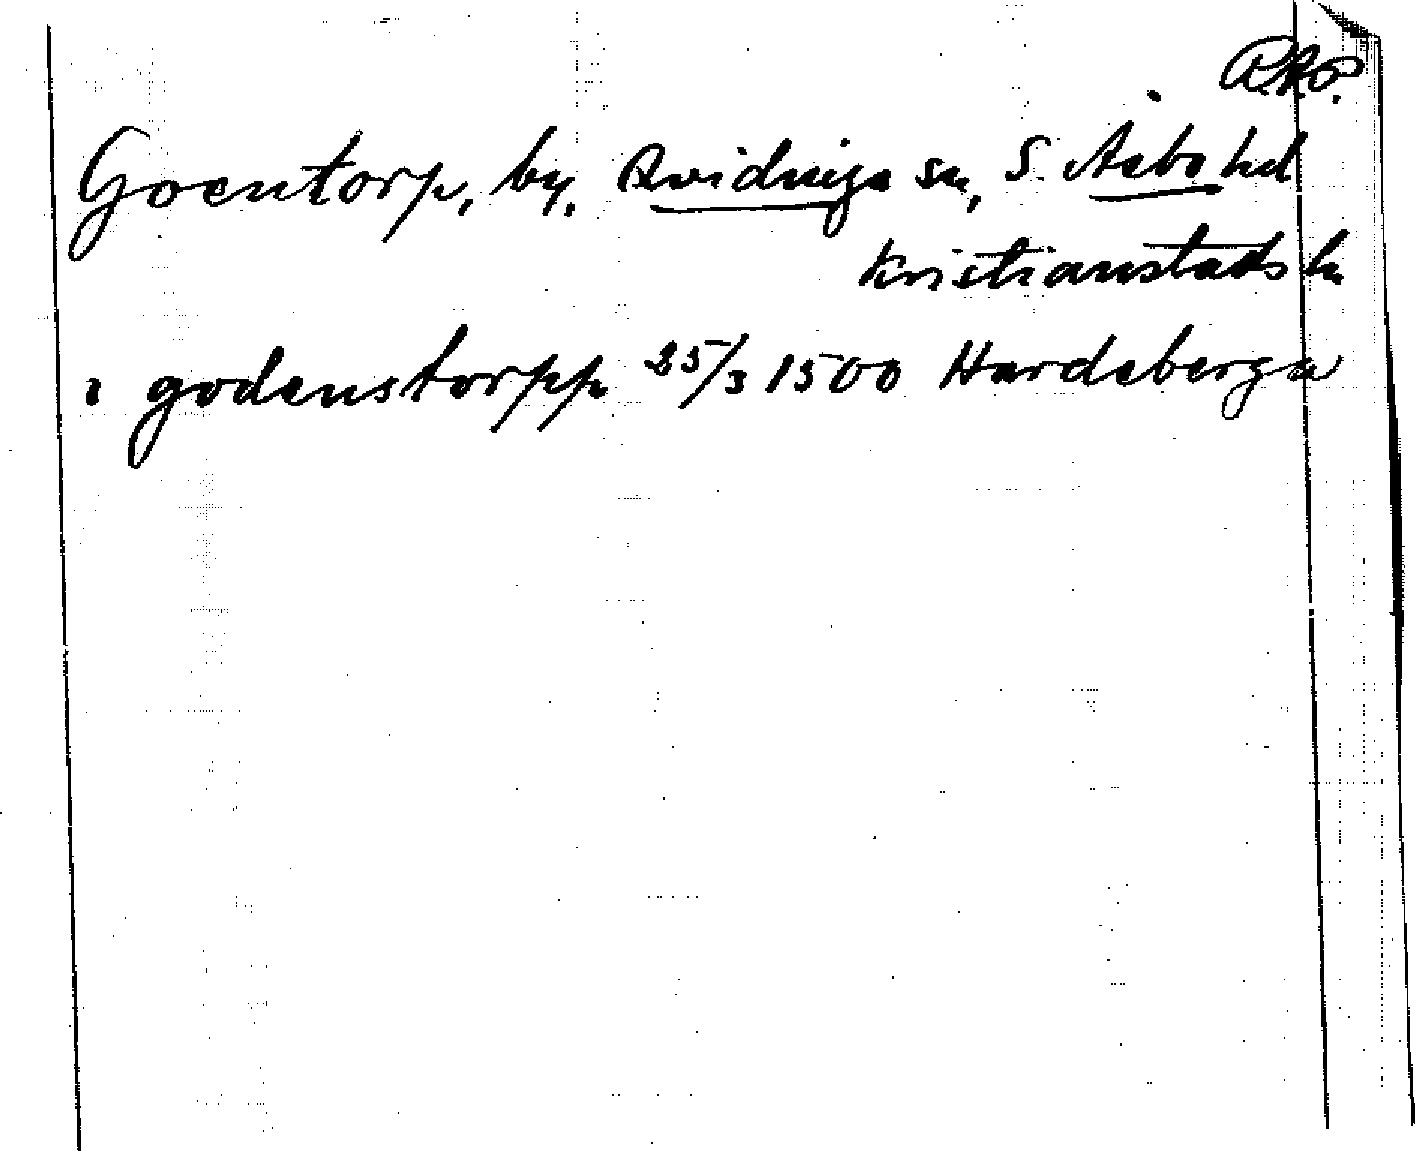 R.A.P.
Goentorp, by, Kvidinge sn, S. Åsbo hd
Kristianstads ln
i godenstorpp 25/3 1500 Hardeberga